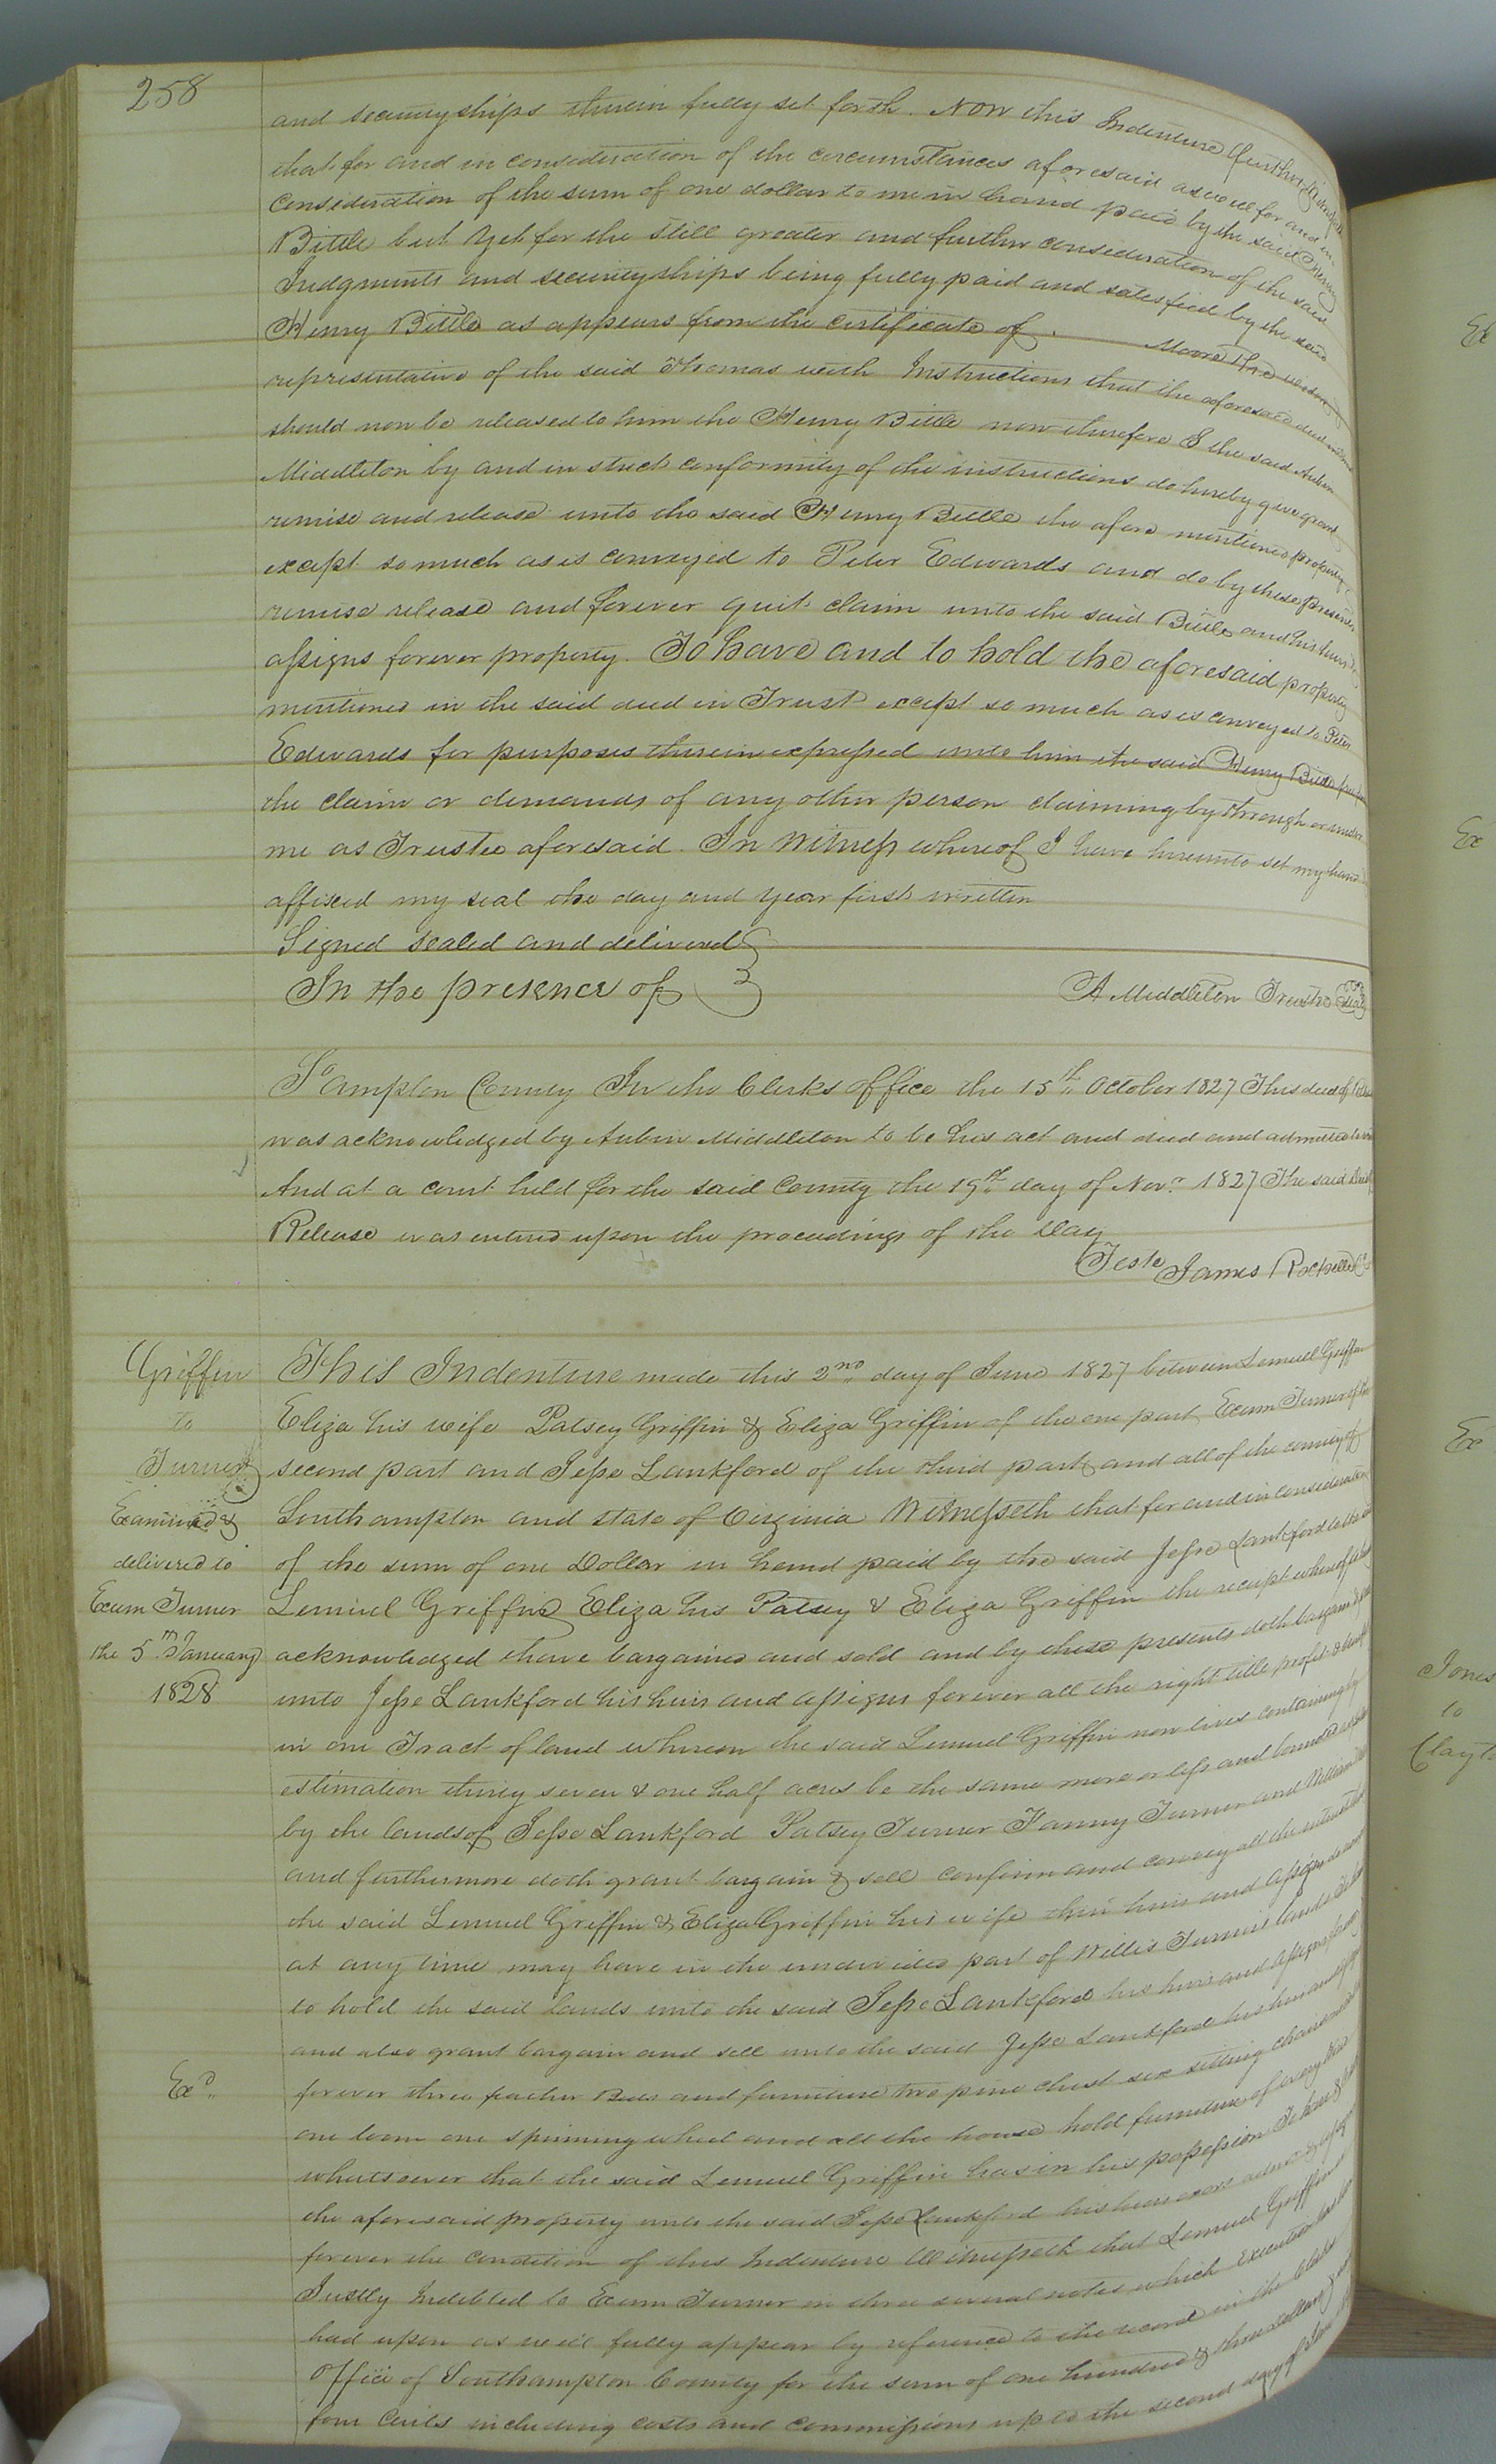 258
and securityships therein fully set forth. Now this Indenture further Witnesseth
that for and in consideration of the circumstances aforesaid as well for and in
consideration of the sum of one dollar to me in hand paid by the said Henry
Bittle but yet for the still greater and further consideration of the said
Judgments and securityships being fully paid and satisfied by the said
Henry Bittle as appears from the certificate of . Moore
representative of the said Thomas with Instructions that the aforesaid deed
should now be released to him the Henry Bittle now therefore I the said Aubin
Middleton by and in strict conformity of the instructions do hereby give grant
remise and release unto the said Henry Bittle the afore mentioned property
except so much as is conveyed to Peter Edwards and do by these presents
remise release and forever quit claim unto the said Bittle and his heirs
assigns forever property. To have and to hold the aforesaid property
mentioned in the said deed in Trust except so much as is conveyed to Peter
Edwards for purposes therein expressed unto him the said Henry Bittle
the claim or demands of any other person claiming by through or under
me as Trustee aforesaid. In Witness whereof I have hereunto set my hand
affixed my seal the day and year first written
Signed sealed and delivered
In the presence of
A Middleton Trustee Seal
So ampton County In the Clerks office the 15th October 1827 This deed of
was acknowledged by Aubin Middleton to be his act and deed and admitted
And at a court held for the said County the 19th day of Novr. 1827 The said
Release was entered upon the proceedings of the day
Teste James Rochelle
Griffin
to
Turner
Examined &
delivered to
Exum Turner
the 5th January
1828
This Indenture made this 2nd day of June 1827 between Lemuel Griffin
Eliza his wife Patsey Griffin & Eliza Griffin of the one part Exum Turner of the
second part and Jesse Lankford of the third part and all of the county of
Southampton and state of Virginia Witnesseth that for and in consideration
of the sum of one Dollar in hand paid by the said Jesse Lankford to the said
Lemuel Griffin Eliza his Patsey & Eliza Griffin the receipt whereof
acknowledged have bargained and sold and by these presents doth bargain &
unto Jesse Lankford his heirs and assigns forever all the right title profit &
in one Tract of land whereon the said Lemuel Griffin now lives containing by
estimation thirty seven & one half acres be the same more or less and bounded
by the lands of Jesse Lankford Patsey Turner Fanny Turner and William
and furthermore doth grant bargain & sell confirm and convey all the
the said Lemuel Griffin & Eliza Griffin his wife their heirs and assigns
at any time may have in the undivided part of Willis Turner's lands
to hold the said lands unto the said Jesse Lankford his heirs and assigns forever
and also grant bargain and sell unto the said Jesse Lankford his heirs and
Exd.
forever three feather Beds and furniture two pine chest six sitting chairs
one loom one spinning wheel and all the house hold furniture of every kind
whatsoever that the said Lemuel Griffin has in his possession To have &
the aforesaid property unto the said Jesse Lankford his heirs &
forever the condition of this Indenture Witnesseth that Lemuel Griffin
Justly Indebted to Exum Turner in three several notes which execution
had upon as will fully appear by reference to the record in the Clerks
Office of Southampton County for the sum of one hundred & three dollars &
four Cents including costs and commissions up to the second day of
Ex
Ex
Ex
Jones
to